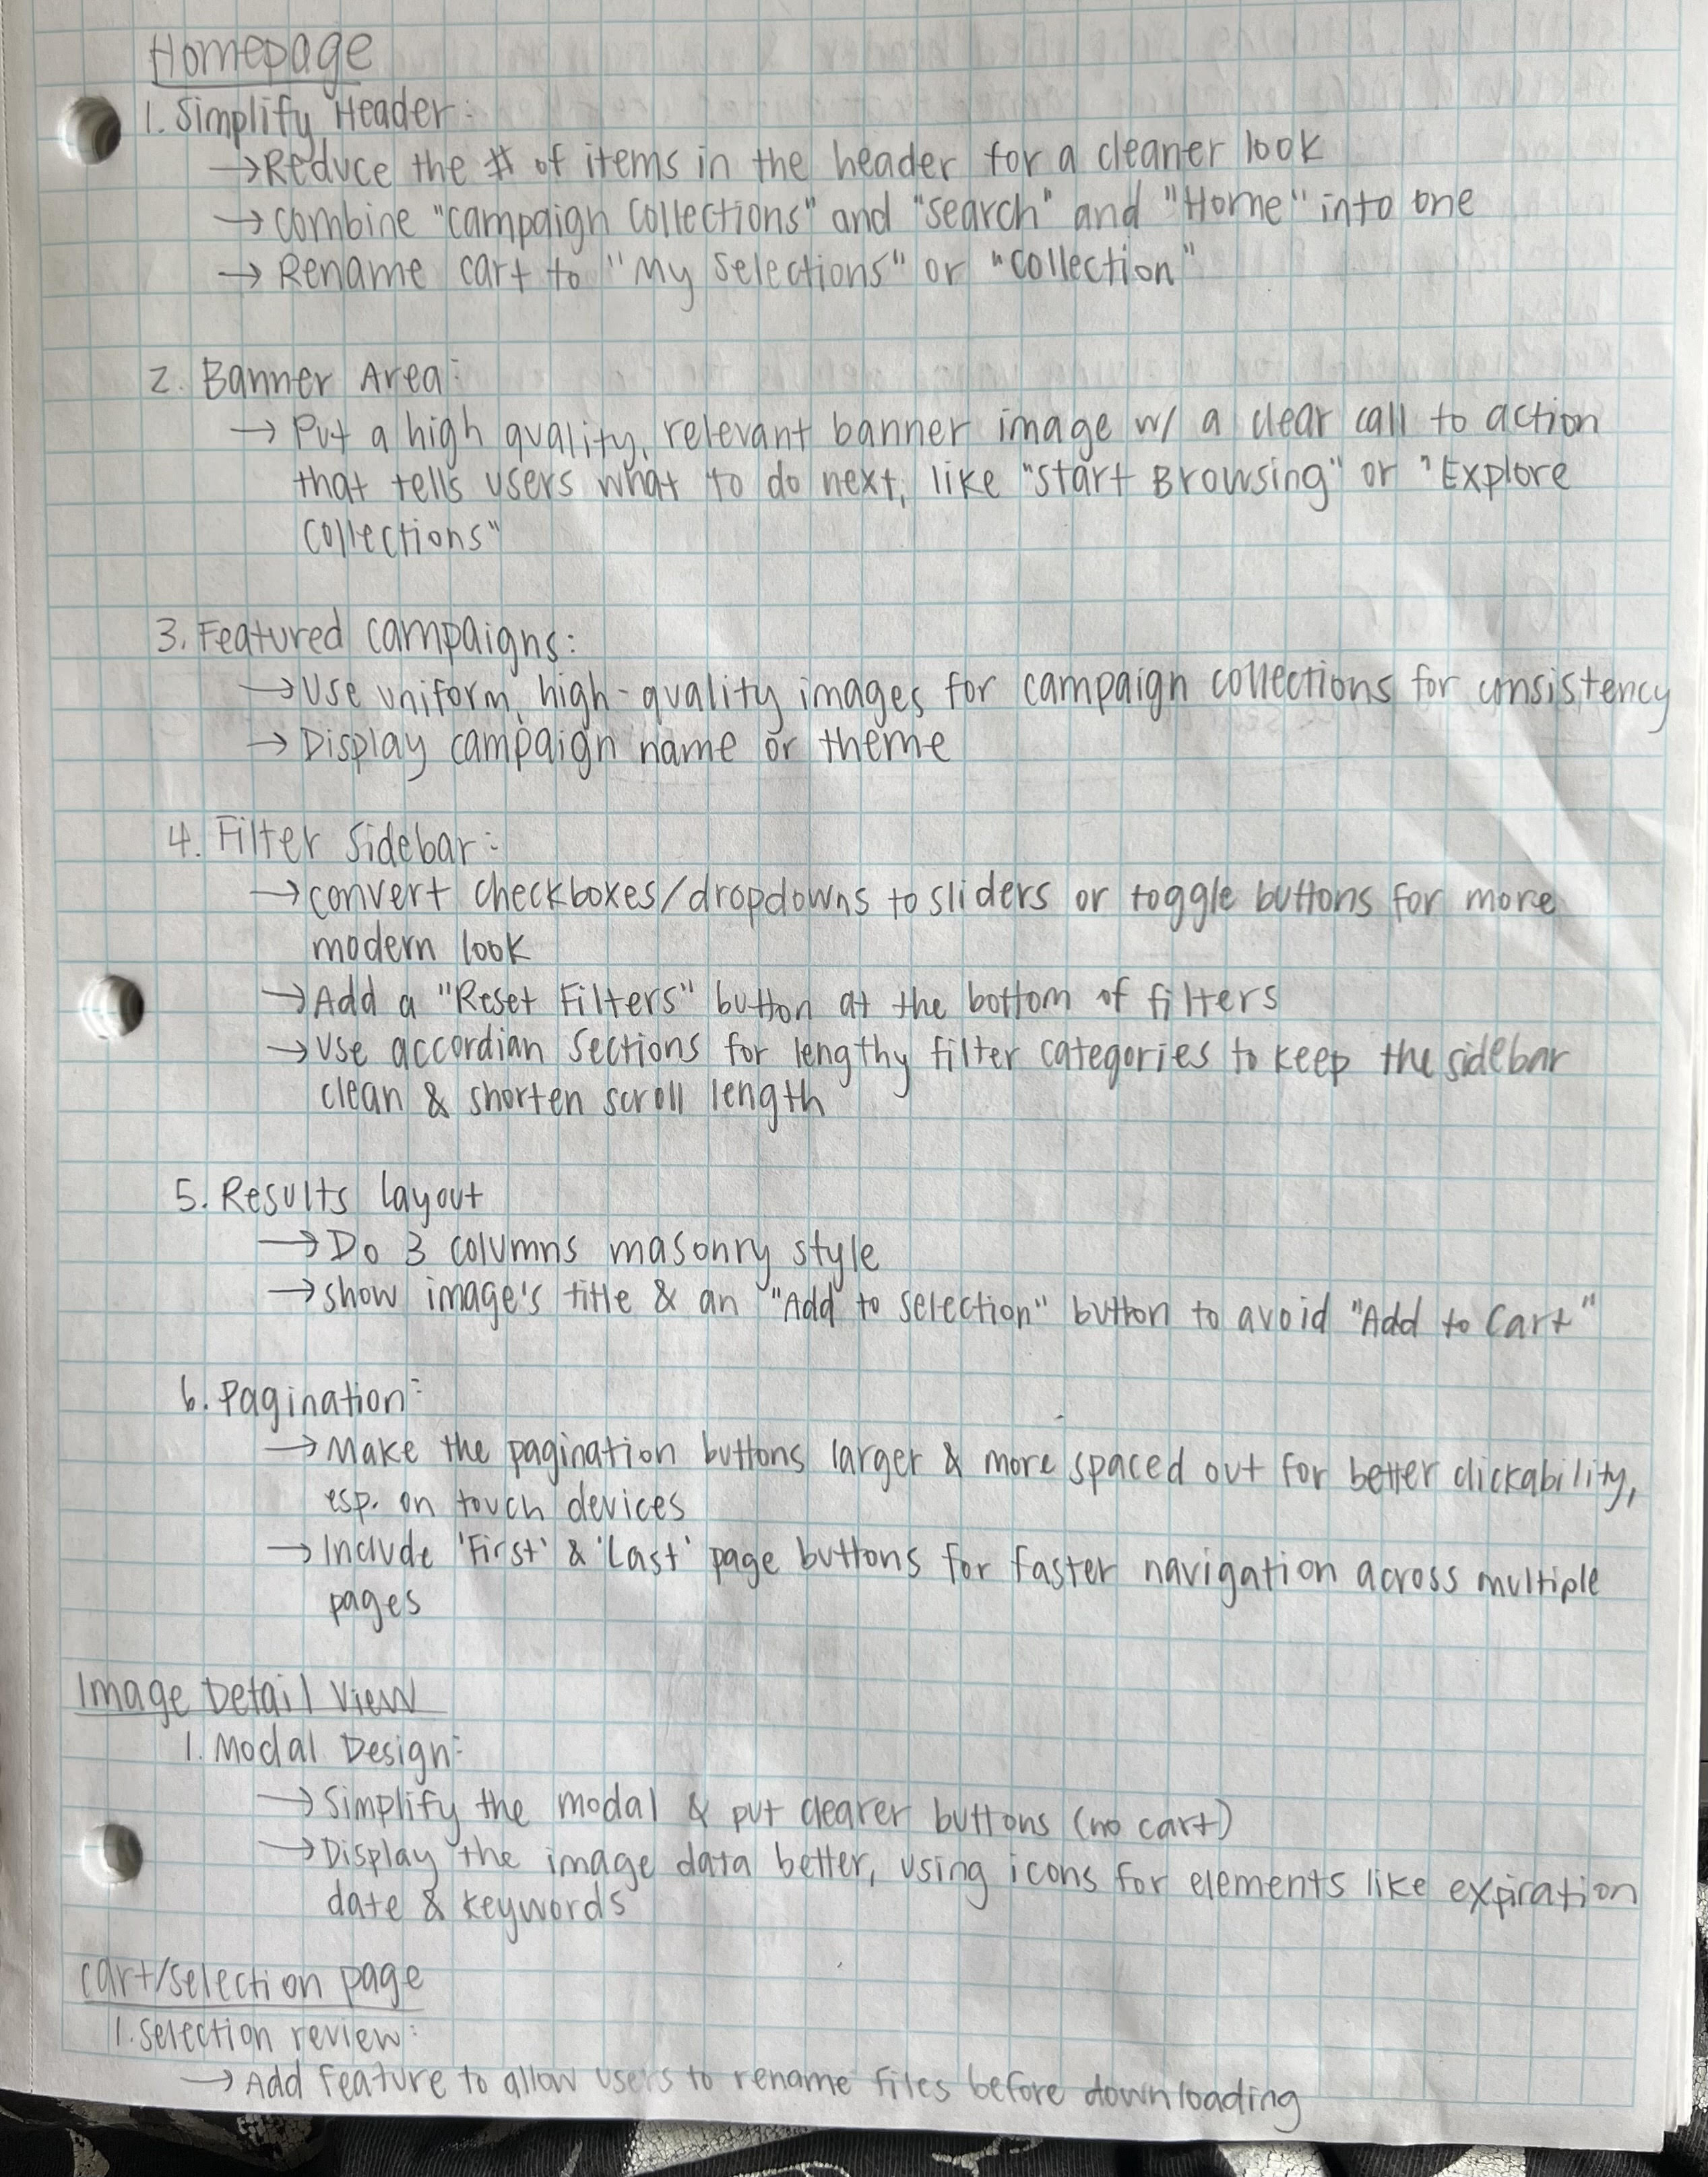 Homepage
1. Simplify Header:
→ Reduce the # of items in the header for a cleaner look
→ combine "campaign collections" and "search" and "Home" into one
→ Rename cart to "My Selections" or "collection"
2. Banner Area:
→ Put a high quality, relevant banner image w/ a clear call to action
that tells users what to do next, like "start Browsing" or "Explore
collections"
3. Featured campaigns:
→ Use uniform, high-quality images for campaign collections for consistency
→ Display campaign name or theme
4. Filter Sidebar:
→ convert checkboxes/dropdowns to sliders or toggle buttons for more
modern look
→ Add a "Reset Filters" button at the bottom of filters
→ Use accordian sections for lengthy filter categories to keep the sidebar
clean & shorten scroll length
5. Results layout
→ Do 3 columns masonry style
→ show image's title & an "Add to selection" button to avoid "Add to Cart"
6. Pagination:
→ Make the pagination buttons larger & more spaced out for better clickability,
esp. on touch devices
→ Include 'First' & 'Last' page buttons for faster navigation across multiple
pages
Image Detail View
1. Modal Design:
→ Simplify the modal & put clearer buttons (no cart)
→ Display the image data better, using icons for elements like expiration
date & keywords
cart/selection page
1. selection review:
→ Add feature to allow users to rename files before downloading